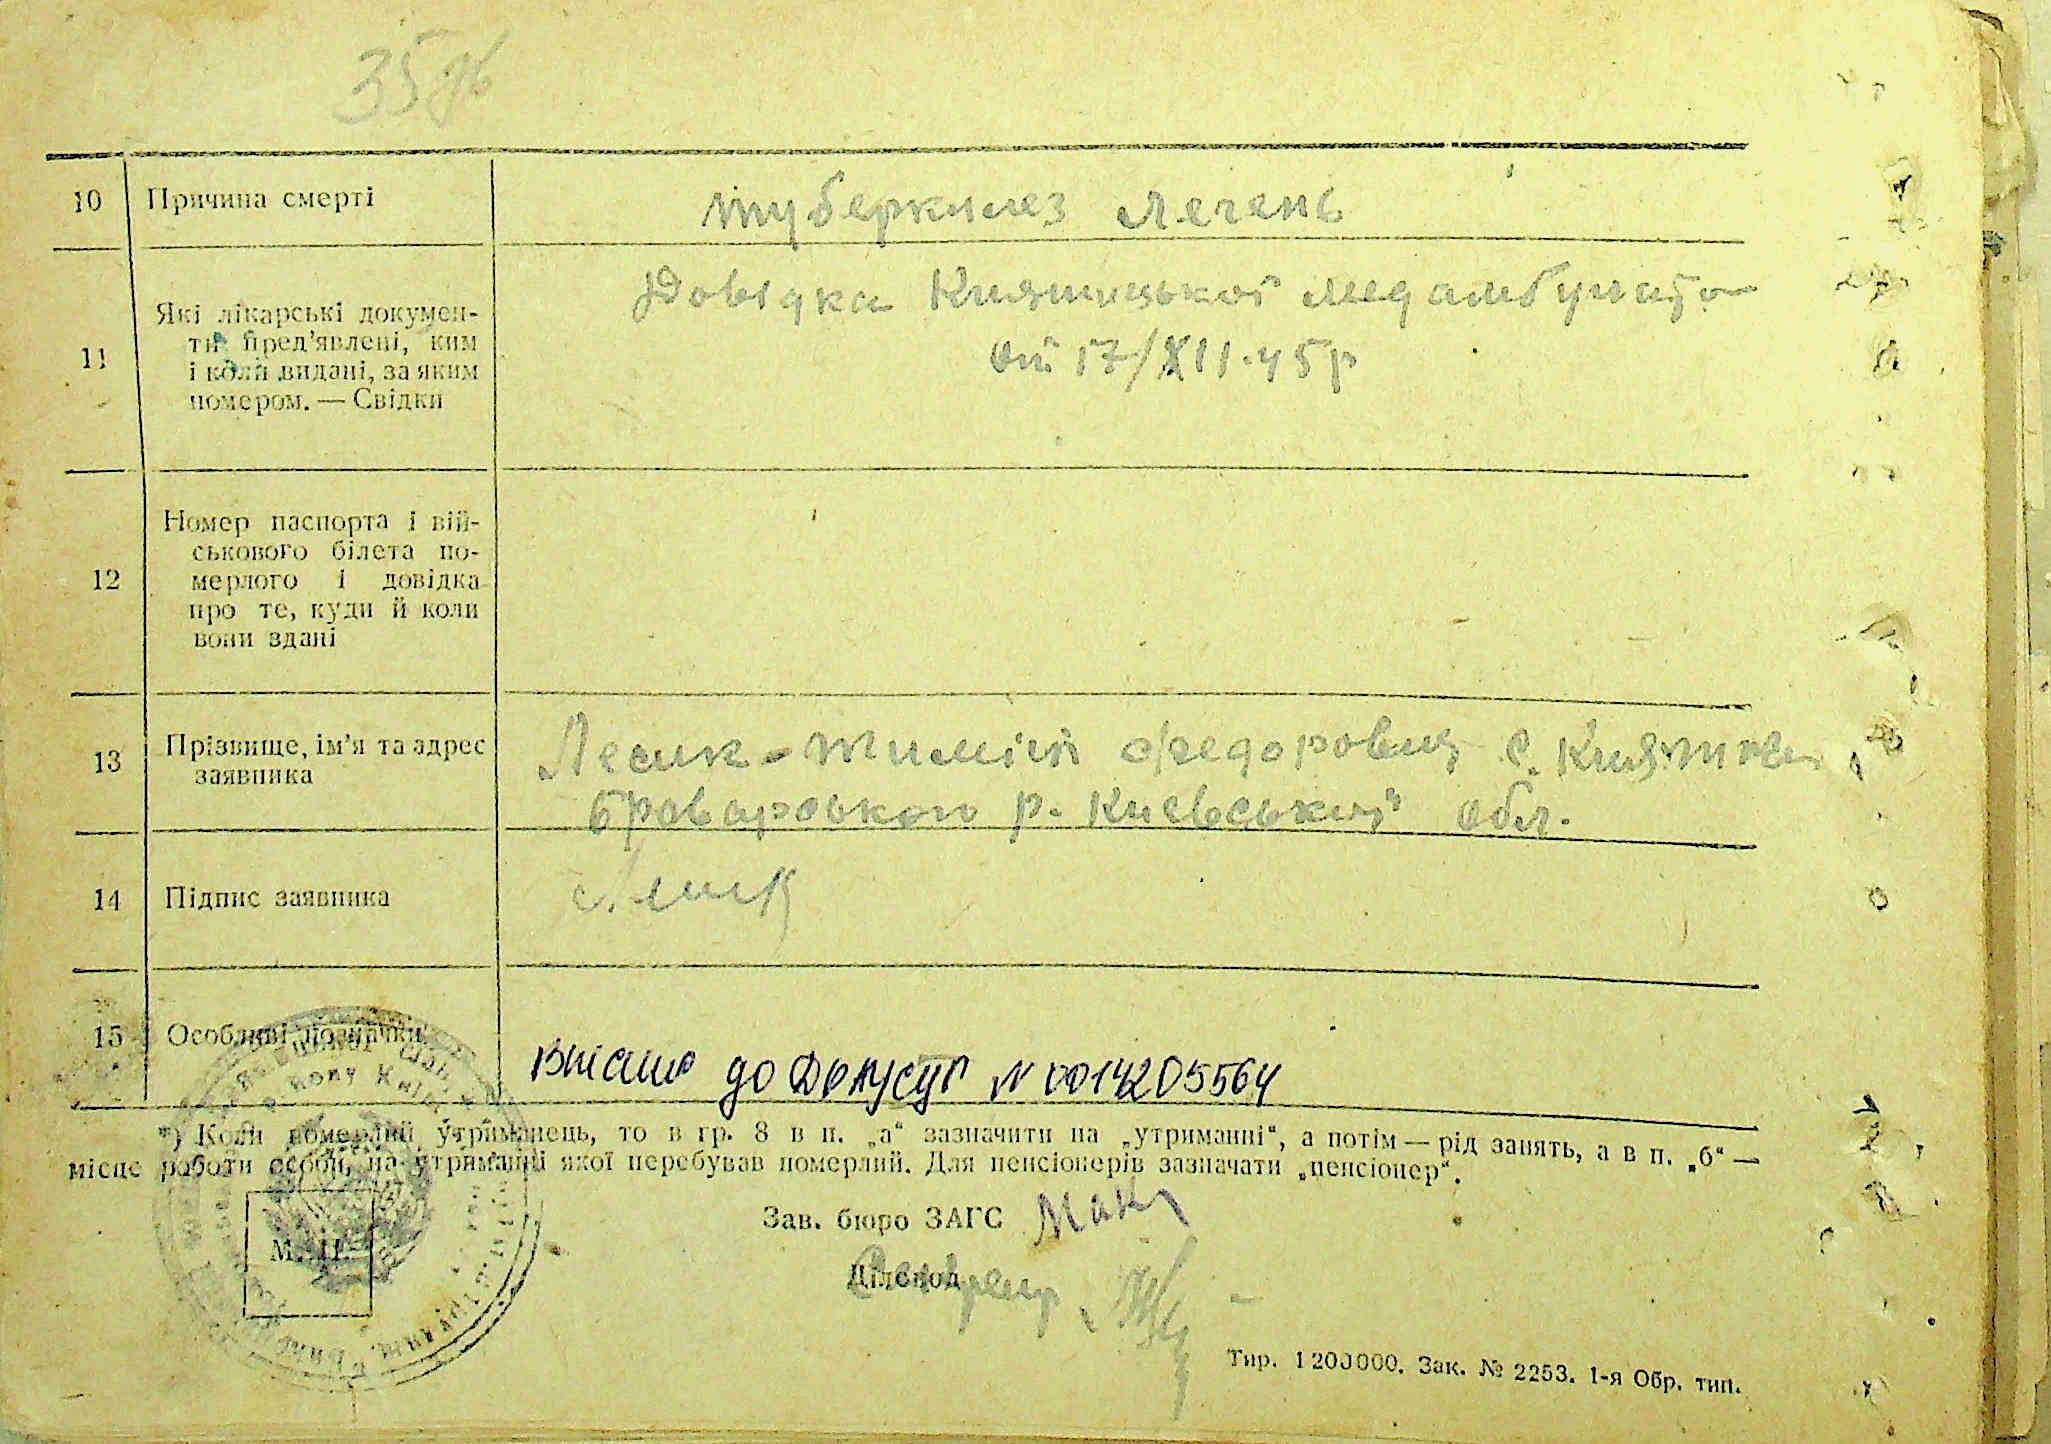 10 Причина смерті
туберкулез легень
11 Які лікарські докумен-
ти пред'явлені, ким
і коли видані, за яким
номером. — Свідки
Довідка Княжицької медамбулатор
від 17/XII.45р
12 Номер паспорта і вій-
ськового білета по-
мерлого і довідка
про те, куди й коли
вони здані
13 Прізвище, ім'я та адрес
заявника
Лесик Тиміш Федорович с. Княжичи
Броварського р. Київської обл.
14 Підпис заявника
15 Особливі позначки
Внесено до ДРАЦСГР N 0014205564
*) Коли померлий утриманець, то в гр. 8 в п. „а“ зазначити на „утриманні“, а потім — рід занять, а в п. „б“ —
місце роботи особи, на утриманні якої перебував померлий. Для пенсіонерів зазначати „пенсіонер“.
Зав. бюро ЗАГС
М. П.
Діловод
Секретар
Тир. 1200000. Зак. № 2253. 1-я Обр. тип.